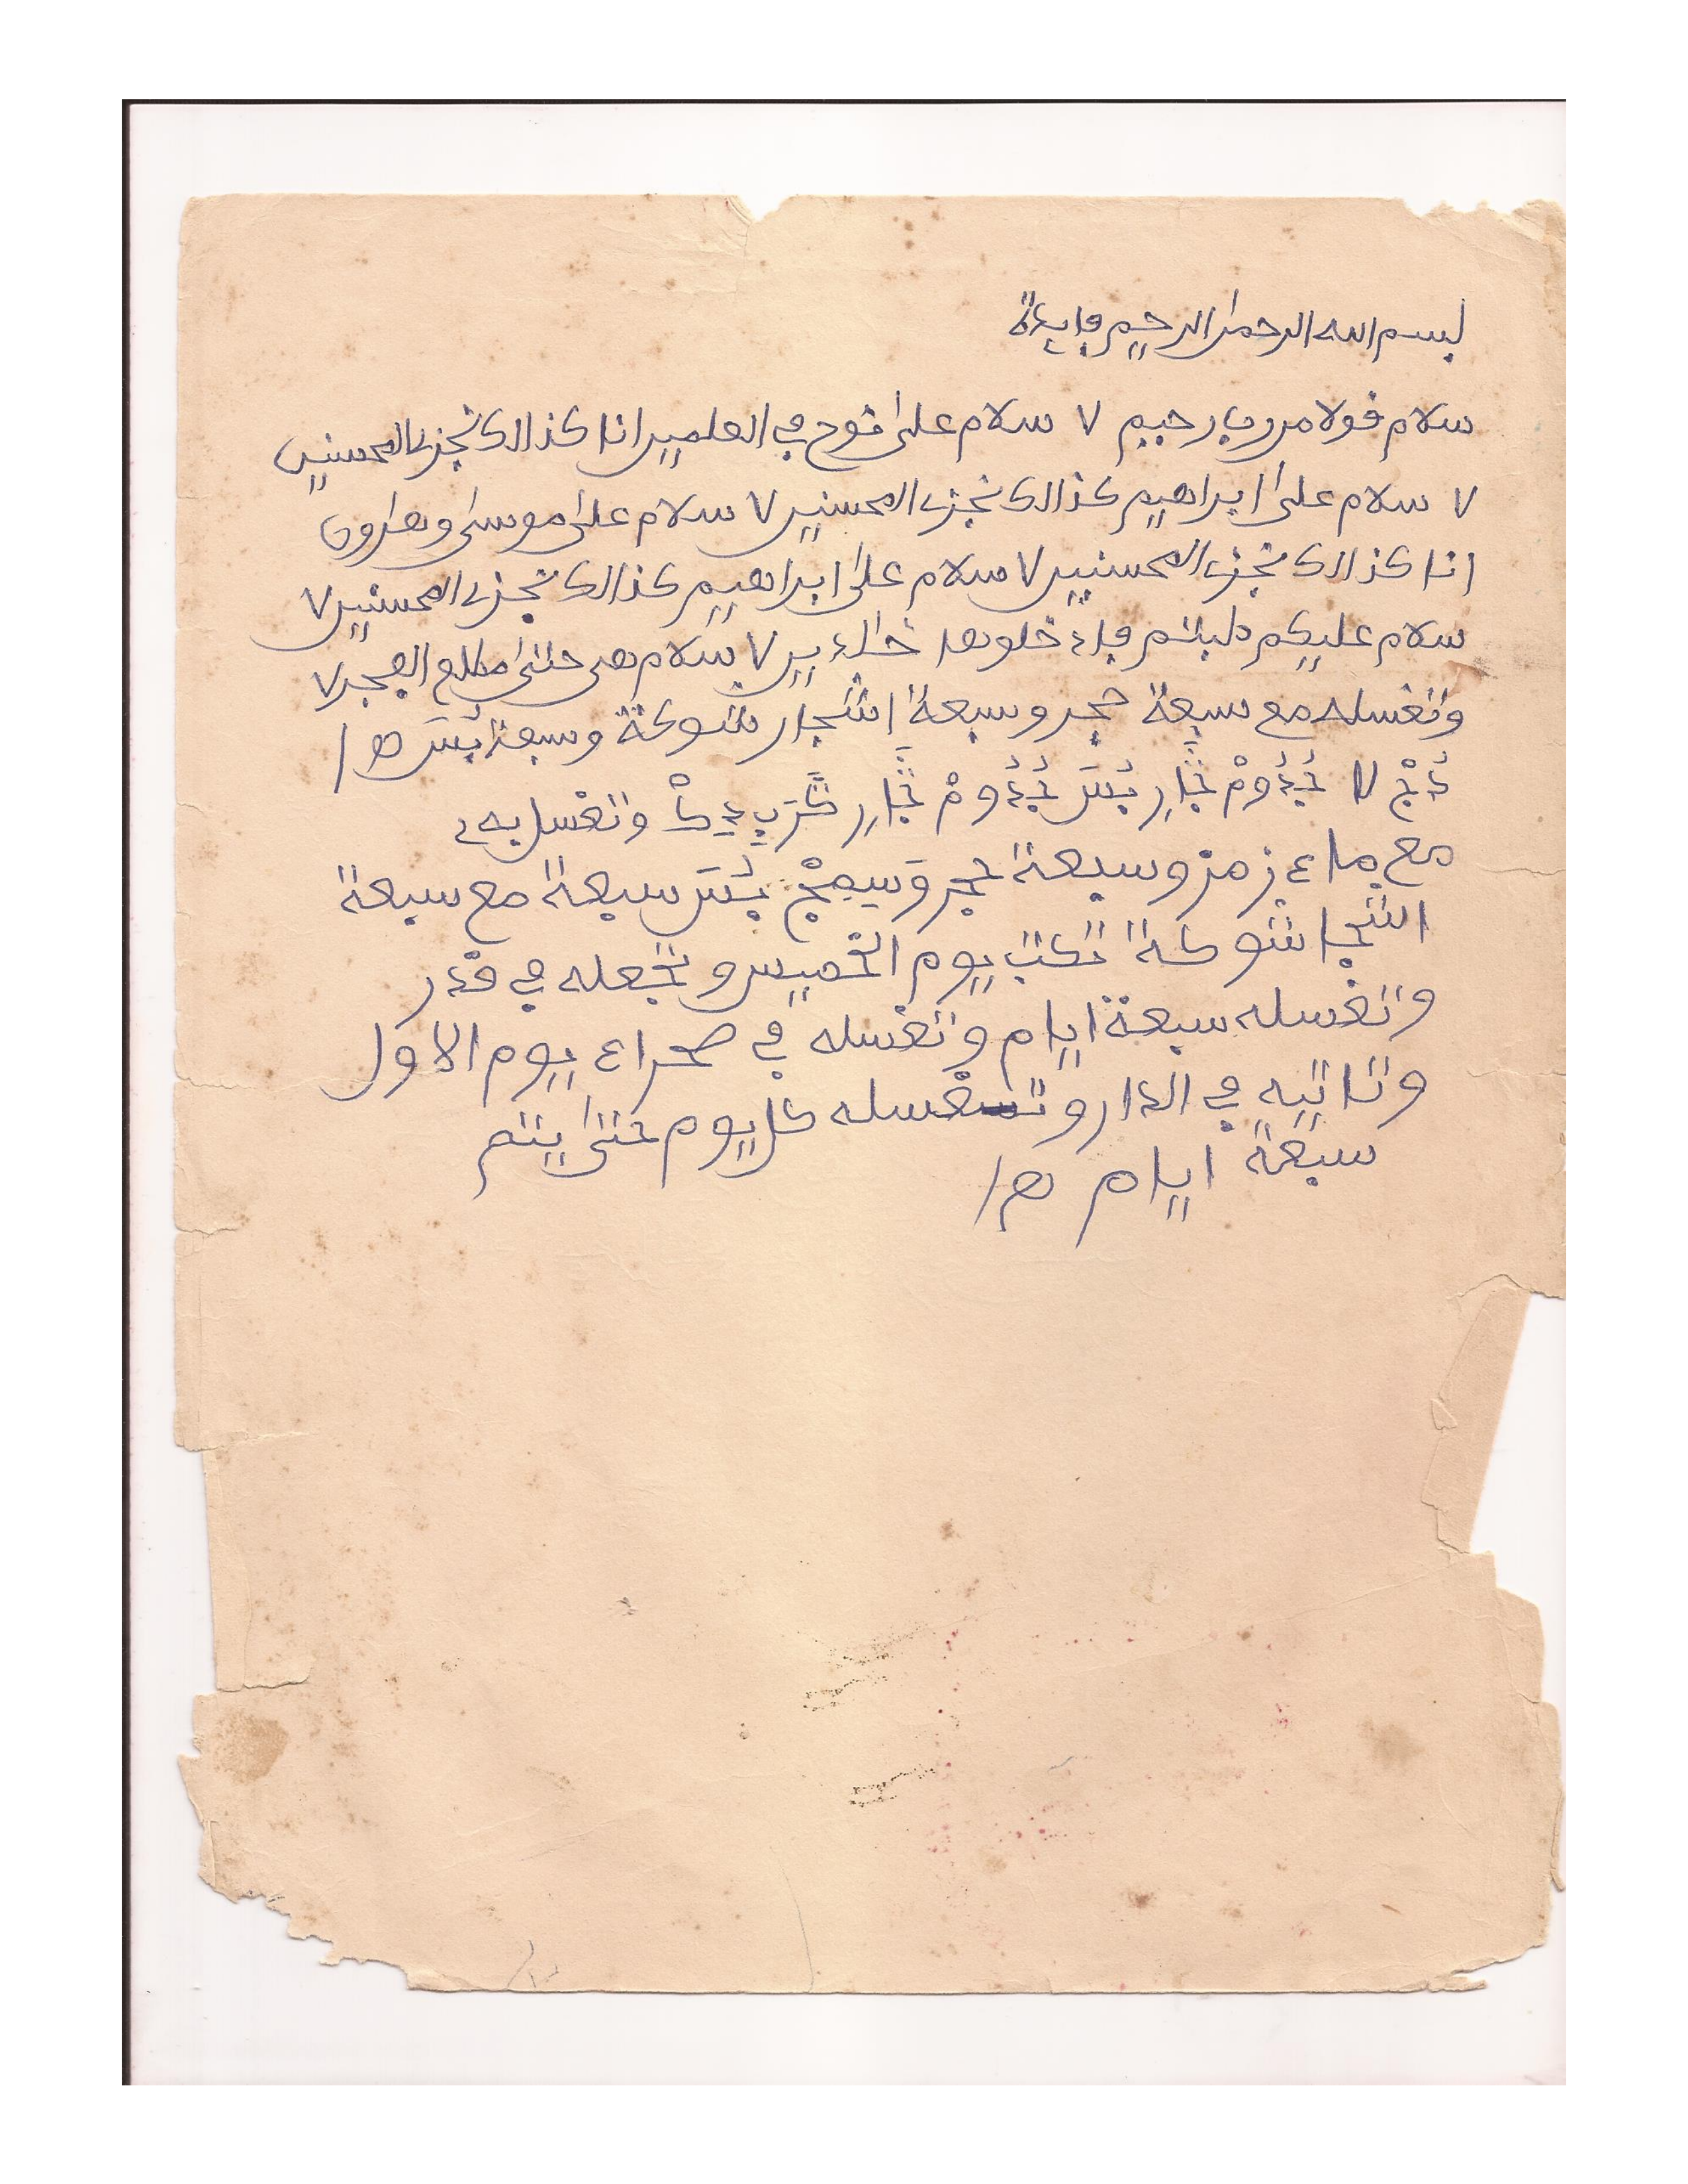 بسم الله الرحمن الرحيم فايدة
سلام قولا من رب رحيم ٧ سلام على نوح في العلمين انا كذالك نجزى المحسنين
٧ سلام على ابراهيم كذالك نجزى المحسنين ٧ سلام على موسى وهارون
انا كذالك نجزى المحسنين ٧ سلام على ابراهيم كذالك نجزى المحسنين ٧
سلام عليكم طبتم فادخلوها خالدين ٧ سلام هى حتى مطلع الفجر ٧
وتغسله مع سبعة حجر وسبعة اشجار شوكة وسبعة بُسَر ھ/
وتغسل به
مع ماء زمز وسبعة حجر بُسَر سبعة مع سبعة
اشجا شوكة تكتب يوم الخميس وتجعله في قدر
وتغسله سبعة ايام وتغسله في صحراء يوم الاول
وتاتيه في الدار وتغسله كل يوم حتى يتم
سبعة ايام ھ/